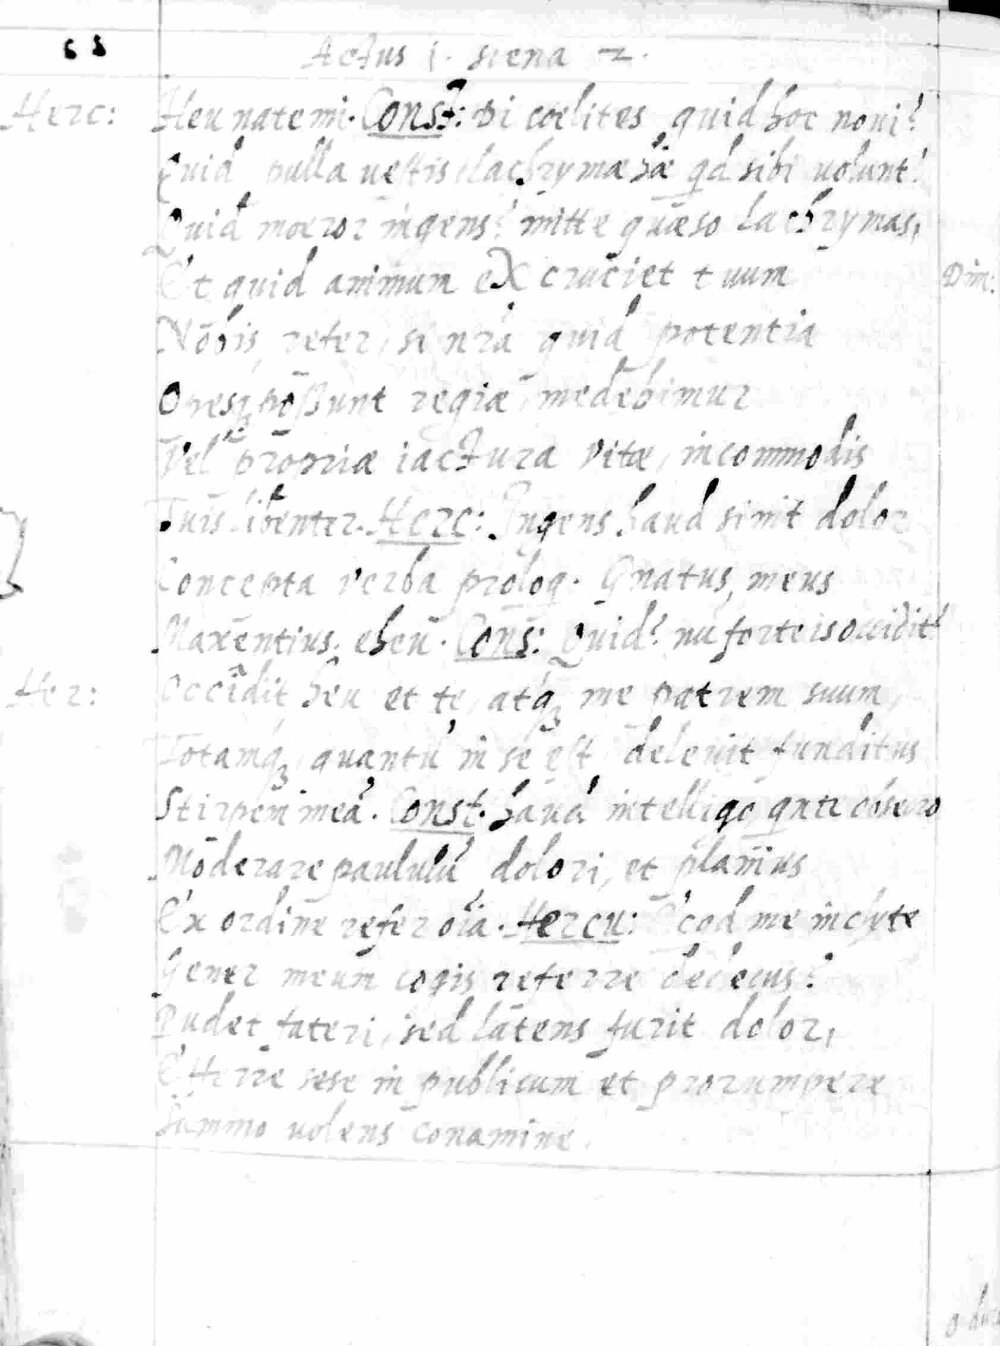 Actus 1. scena 2.
Herc: Heu nate mi. Const: Di cœlites quid hoc noui?
Quid pulla uestis, lachrymæ hæ qd sibi uolunt?
Quid moeror ingens? mitte quæso lachrymas,
Et quid animum excruciet tuum
Dim:
Nobis refer, si nrã quid potentia
Opesq; poßunt regiæ, medebimur
Vel propriæ iactura vitæ, incommodis
Tuis libenter. Herc: Ingens haud sinit dolor
Concepta verba proloq. Gnatus, meus
Maxentius. eheu. Cons: Quid? nũ forte is occidit?
Her: Occidit heu et te, atq; me patrem suum,
Totamq; quantũ in se est deleuit funditus
Stirpem meã. Const. haud intelligo, obsecro
Moderare paululũ dolori, et planius
Ex ordine refer oĩa. Hercu: me inclyte
Gener meum cogis referre dedecus?
Pudet fateri, sed latens furit dolor,
Efferre sese in publicum et prorumpere
Summo uolens conamine.